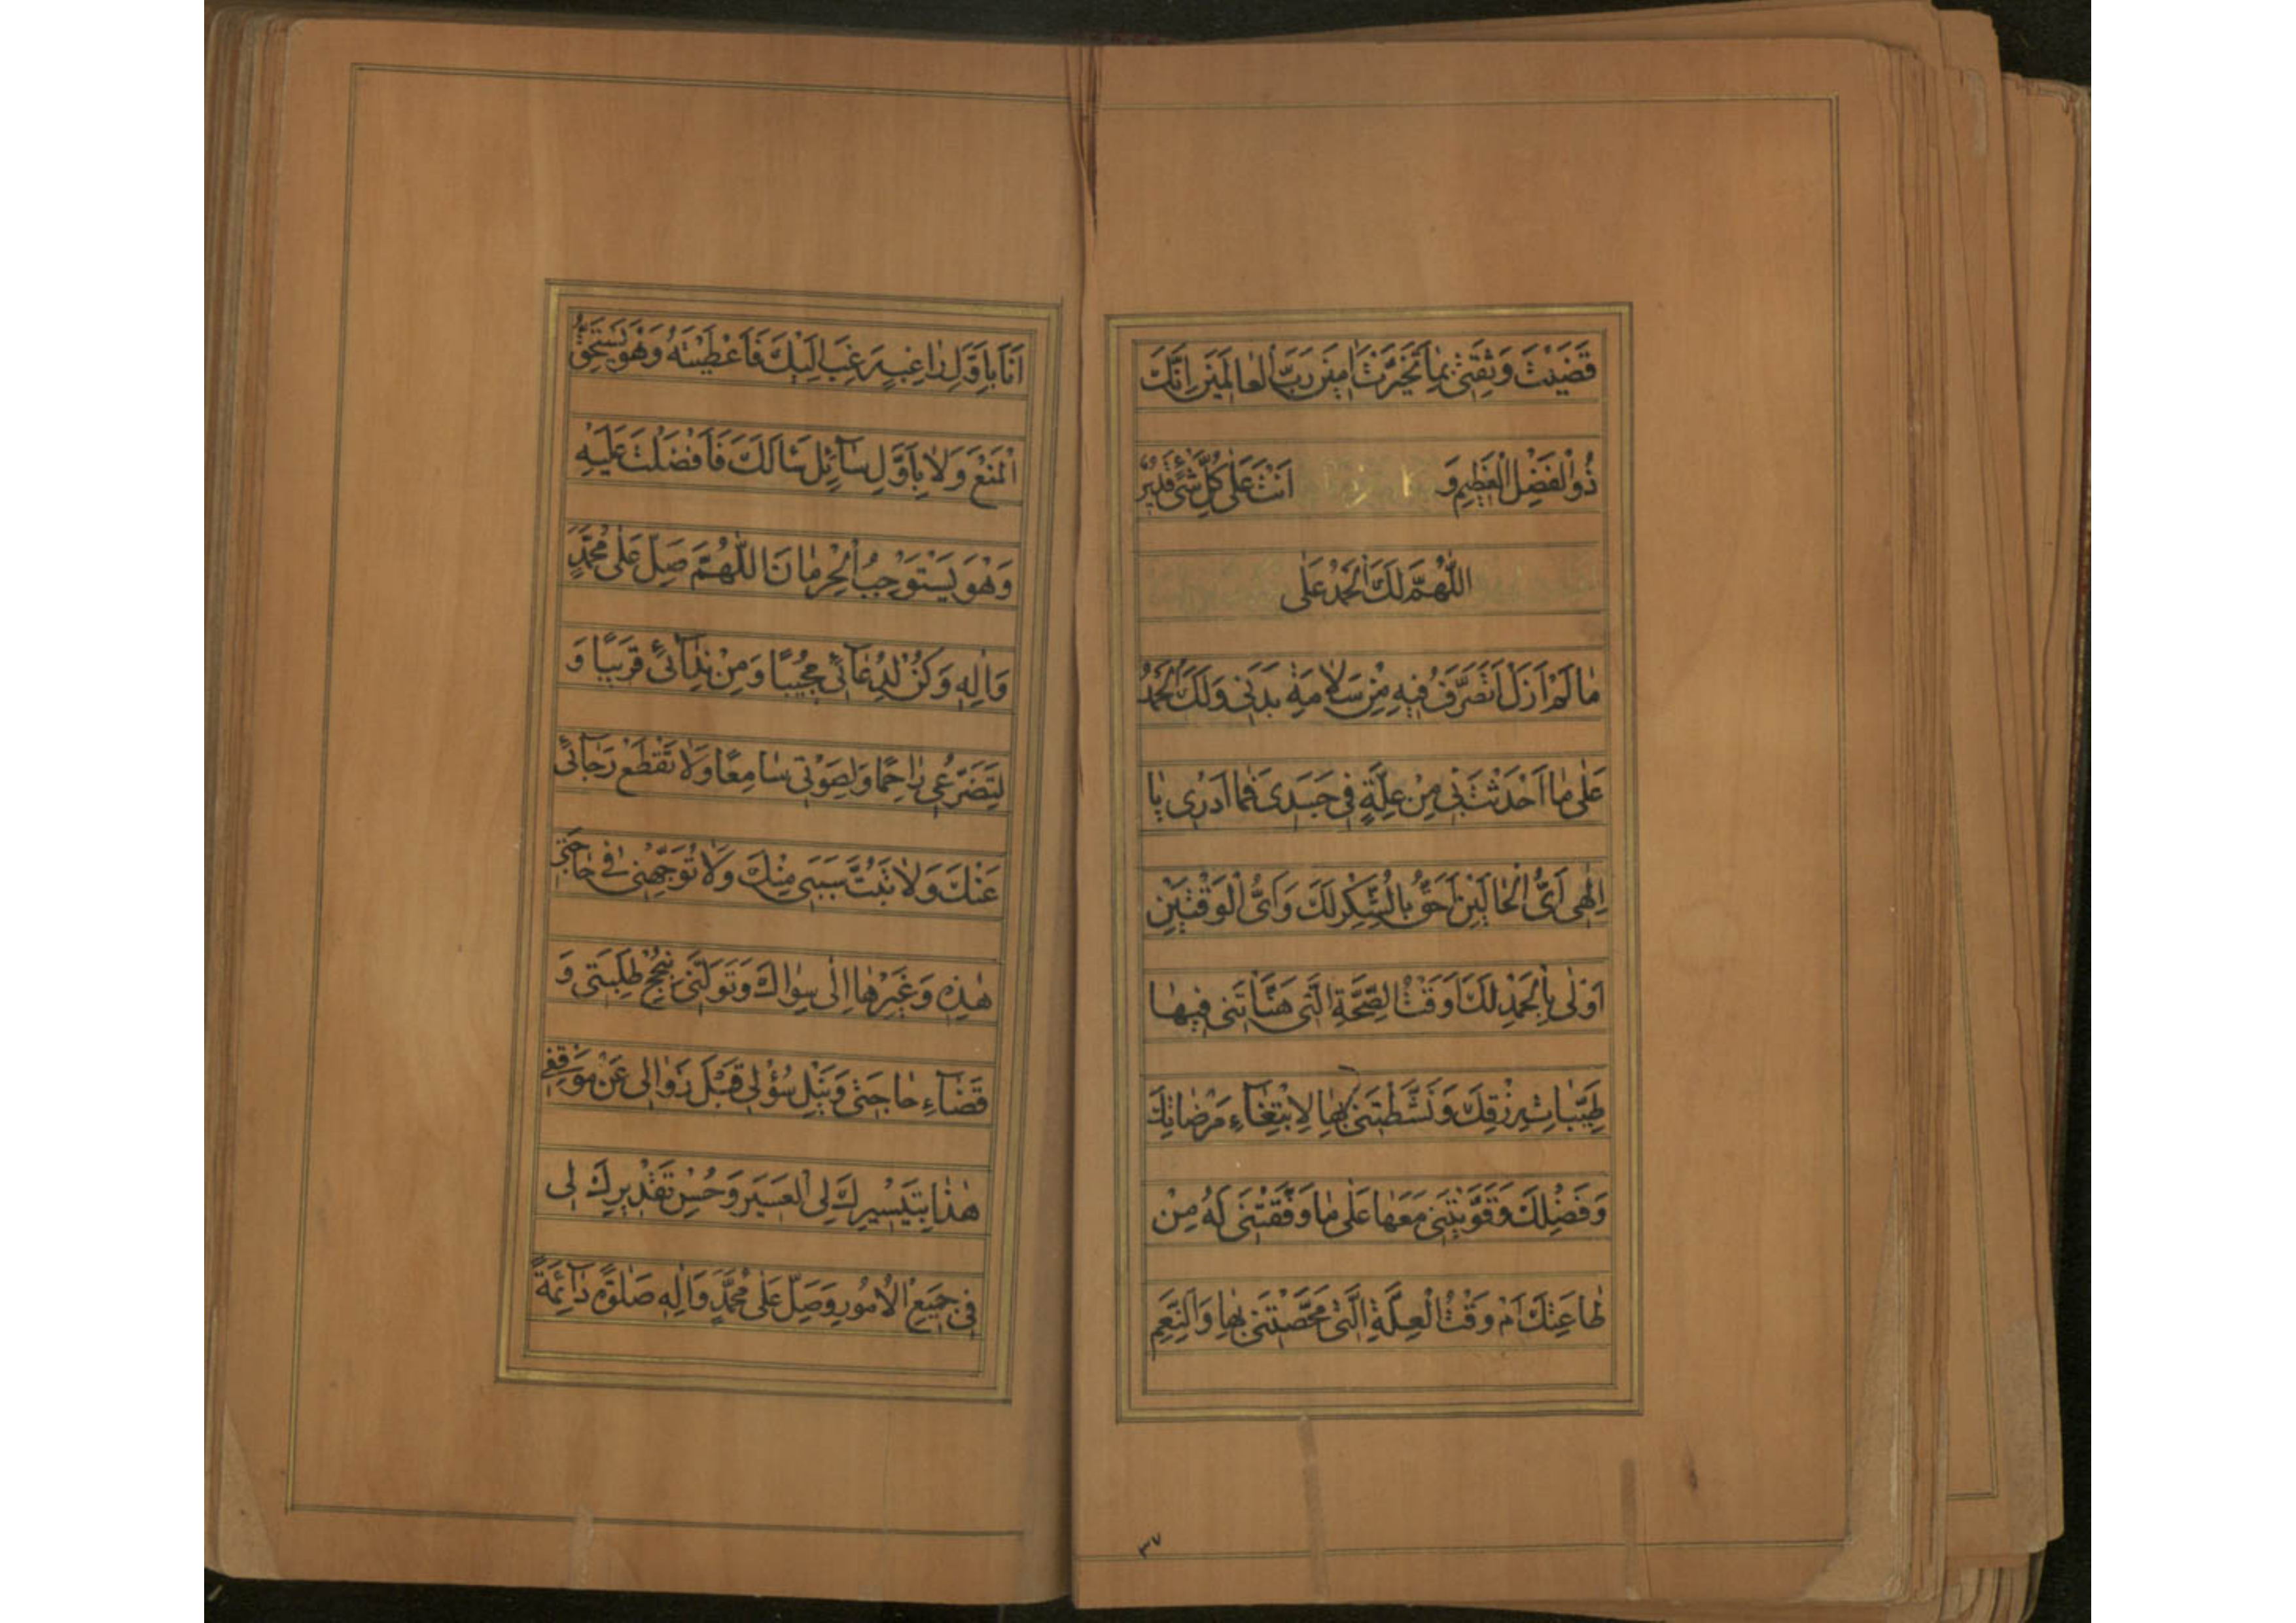 قَضَيْتَ وَثِقَتِي بِمَا تَخَيَّرْتَ اٰمِينَ رَبَّ الْعَالَمِينَ اِنَّكَ
ذُو الْفَضْلِ الْعَظِيمِ وَ اَنْتَ عَلٰى كُلِّ شَيْءٍ قَدِيرٌ
اَللّٰهُمَّ لَكَ الْحَمْدُ عَلٰى
مٰا لَمْ اَزَلْ اَتَصَرَّفُ فِيهِ مِنْ سَلاٰمَةِ بَدَنِي وَلَكَ الْحَمْدُ
عَلٰى مٰا اَحْدَثْتَ بِي مِنْ عِلَّةٍ فِي جَسَدِى فَمٰا اَدْرِى يٰا
اِلٰهِى اَىُّ الْحٰالَيْنِ اَحَقُّ بِالشُّكْرِ لَكَ وَاَىُّ الْوَقْتَيْنِ
اَوْلٰى بِالْحَمْدِ لَكَ اَوَقْتُ الصِّحَّةِ الَّتِى هَنَّاْتَنِى فِيهٰا
طَيِّبٰاتِ رِزْقِكَ وَنَشَّطْتَنِى بِهٰا لِابْتِغٰآءِ مَرْضٰاتِكَ
وَفَضْلِكَ وَقَوَّيْتَنِى مَعَهٰا عَلٰى مٰا وَفَّقْتَنِى لَهُ مِنْ
طٰاعَتِكَ اَمْ وَقْتُ الْعِلَّةِ الَّتِى مَحَّصْتَنِى بِهٰا وَالنِّعَمِ
٣٧
اَنَا بِاَوَّلِ رٰاغِبٍ رَغِبَ اِلَيْكَ فَاَعْطَيْتَهُ وَهُوَ يَسْتَحِقُّ
الْمَنْعَ وَلاٰ بِاَوَّلِ سٰآئِلٍ سَاَلَكَ فَاَفْضَلْتَ عَلَيْهِ
وَهُوَ يَسْتَوْجِبُ الْحِرْمٰانَ اَللّٰهُمَّ صَلِّ عَلٰى مُحَمَّدٍ
وَاٰلِهِ وَكُنْ لِدُعٰآئِى مُجِيبًا وَمِنْ نِدٰآئِى قَرِيبًا وَ
لِتَضَرُّعِى رٰاحِمًا وَلِصَوْتِى سٰامِعًا وَلاٰ تَقْطَعْ رَجٰآئِى
عَنْكَ وَلاٰ تَبُتَّ سَبَبِى مِنْكَ وَلاٰ تُوَجِّهْنِى فِى حٰاجَتِى
هٰذِهِ وَغَيْرِهٰا اِلٰى سِوٰاكَ وَتَوَلَّنِى بِنُجْحِ طَلِبَتِى وَ
قَضٰآءِ حٰاجَتِى وَنَيْلِ سُؤْلِى قَبْلَ زَوٰالِى عَنْ مَوْقِفِى
هٰذٰا بِتَيْسِيرِكَ لِىَ الْعَسِيرَ وَحُسْنِ تَقْدِيرِكَ لِى
فِى جَمِيعِ الْاُمُورِ وَصَلِّ عَلٰى مُحَمَّدٍ وَاٰلِهِ صَلٰوةً دٰآئِمَةً